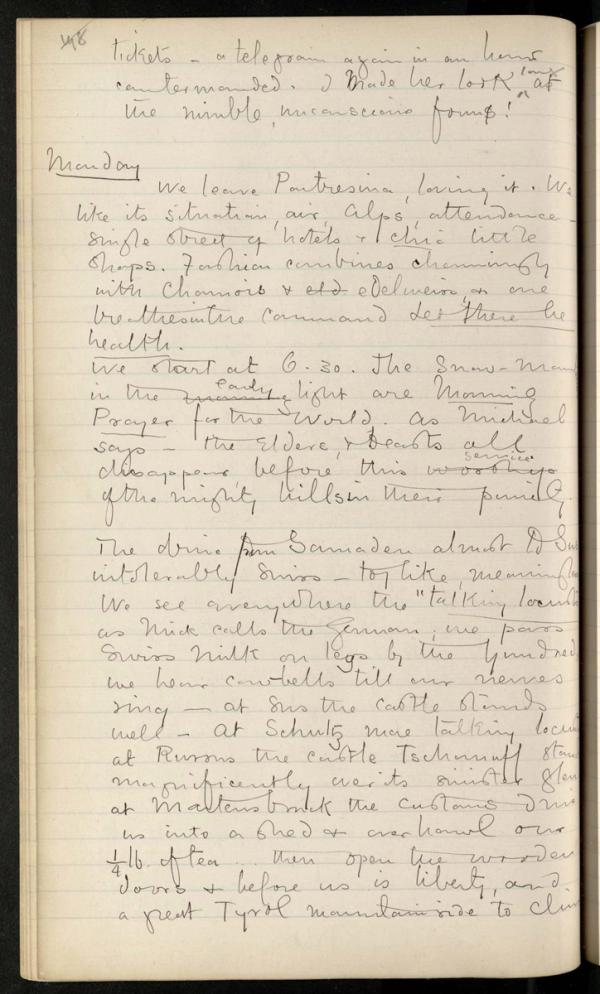 198
tickets – a telegram again in an hour
countermanded. I made her look long at
the nimble, unconscious forms!
Monday
We leave Pontresina, loving it. We
like its situation, air, Alps, attendance –
single street of hotels & chic little
shops. Fashion combines charmingly
with Chamois & eld edelweiss, & one
breathes in the command Let there be
health.
We start at 6.30. The Snow-Moun
in the early light are Morning
Prayer for the World. As Michael
says – the Elders & Beasts all
disappear before this worship service
of the mighty hills in their purity.
The drive from Samaden almost to Sus
intolerably Swiss – toy like, meaningless
We see everywhere the "talking locusts
as Mick calls the German; we pass
Swiss Milk on legs by the hundreds
we hear cowbells till our nerves
ring – at Sus the castle stands
well – At Schultz more talking locus
at Remüs the castle Tschanuff stan
magnificently over its sinister glen
at Martinsbruck the customs drive
us into a shed & overhawl our
¼ lb. of tea ... then open the wooden
doors & before us is liberty, and
a great Tyrol mountain side to clim